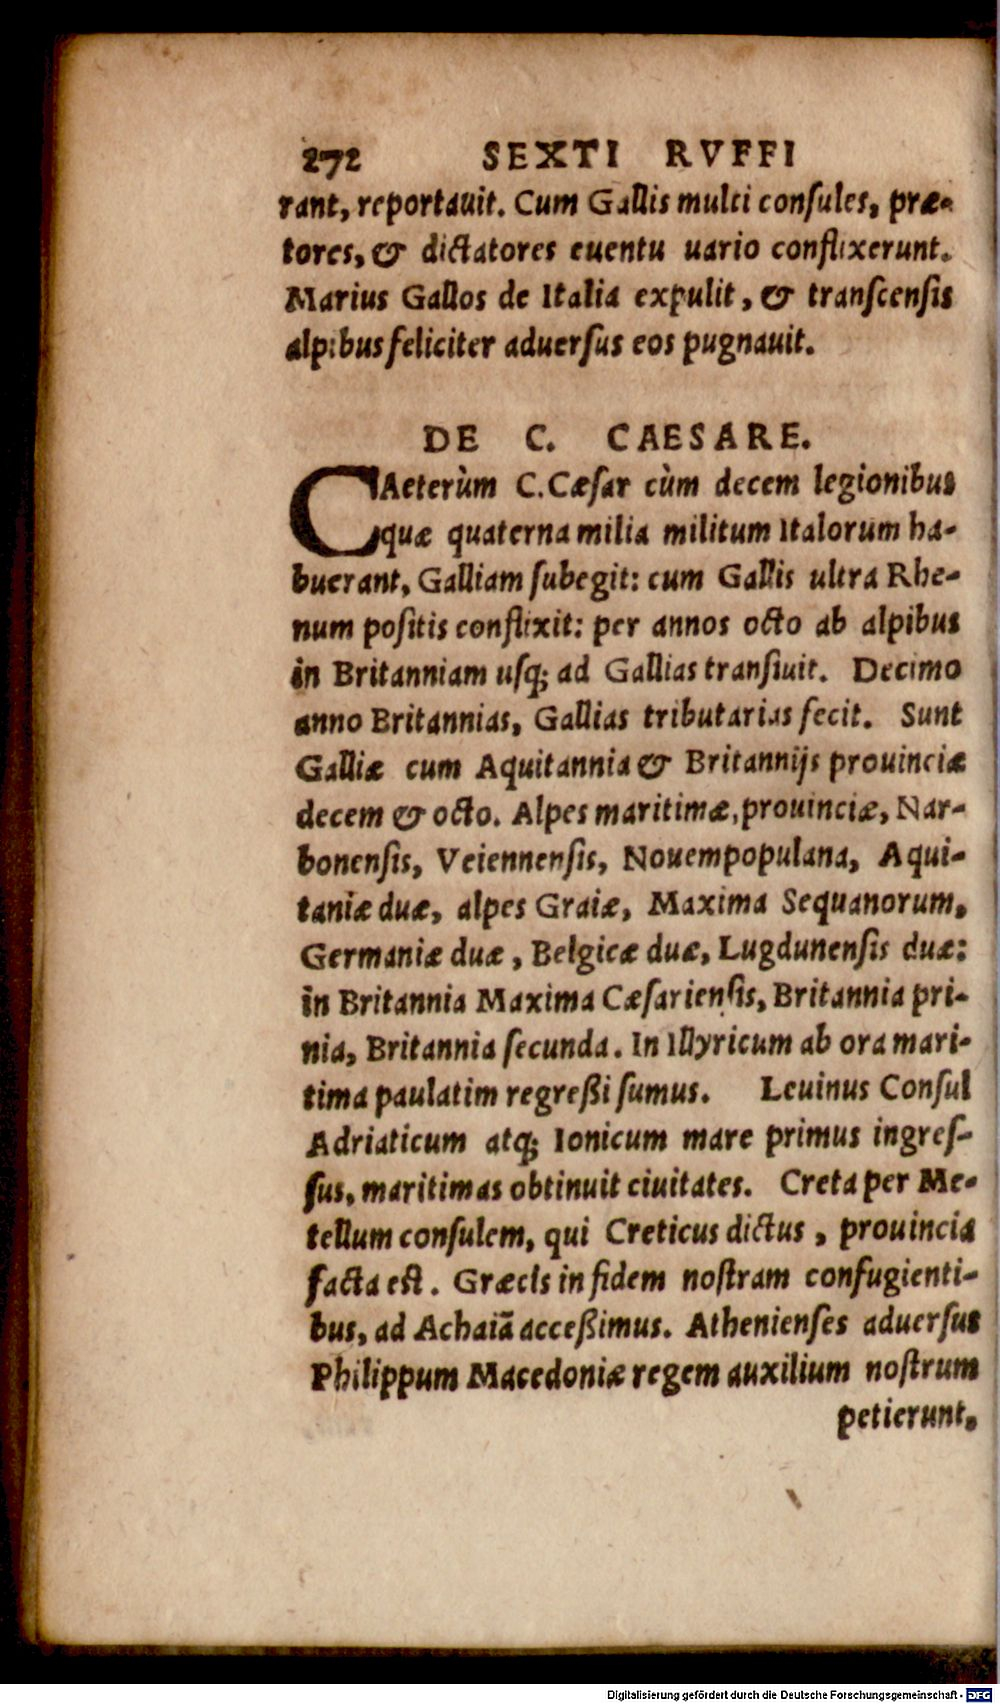 272 SEXTI RVFFI
rant, reportauit. Cum Gallis multi conſules, præ-
tores, & dictatores euentu uario conflixerunt.
Marius Gallos de Italia expulit, & tranſcenſis
alpibus feliciter aduerſus eos pugnauit.
DE C. CAESARE.
CAeterùm C. Cæſar cùm decem legionibus
quæ quaterna milia militum Italorum ha-
buerant, Galliam ſubegit: cum Gallis ultra Rhe-
num poſitis conflixit: per annos octo ab alpibus
in Britanniam uſq; ad Gallias tranſiuit. Decimo
anno Britannias, Gallias tributarias fecit. Sunt
Galliæ cum Aquitannia & Britannijs prouinciæ
decem & octo. Alpes maritimæ, prouinciæ, Nar-
bonenſis, Veiennenſis, Nouempopulana, Aqui-
taniæ duæ, alpes Graiæ, Maxima Sequanorum,
Germaniæ duæ, Belgicæ duæ, Lugdunenſis duæ:
in Britannia Maxima Cæſarienſis, Britannia pri-
nia, Britannia ſecunda. In Illyricum ab ora mari-
tima paulatim regreßi ſumus. Leuinus Conſul
Adriaticum atq; Ionicum mare primus ingreſ-
ſus, maritimas obtinuit ciuitates. Creta per Me-
tellum conſulem, qui Creticus dictus, prouincia
facta eſt. Græcis in fidem noſtram confugienti-
bus, ad Achaiã acceßimus. Athenienſes aduerſus
Philippum Macedoniæ regem auxilium noſtrum
petierunt.
Digitalisierung gefördert durch die Deutsche Forschungsgemeinschaft - DFG